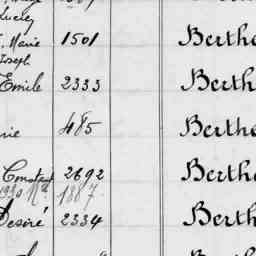 Lucley
Marie 1501 Berth
Joseph
Emile 2333 Berth
rie 485 Berth
Constant 2692 Berth
1930 Md 1887
Desiré 2334 Berth